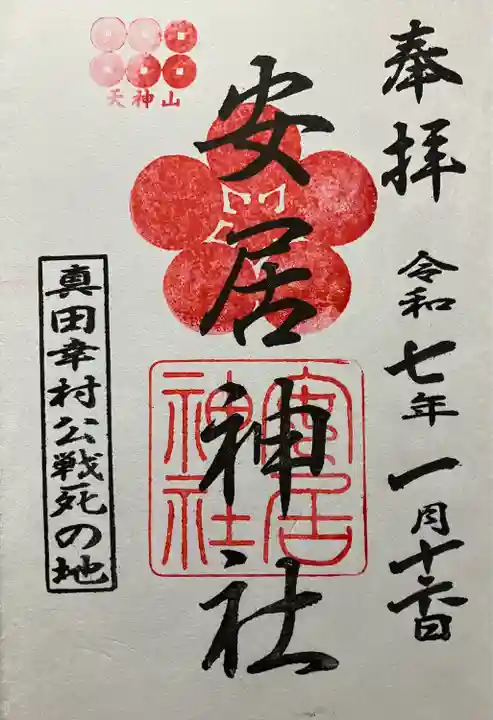 奉拝
令和七年一月十六日
安居神社
天神山
安居
神社
真田幸村公戦死の地